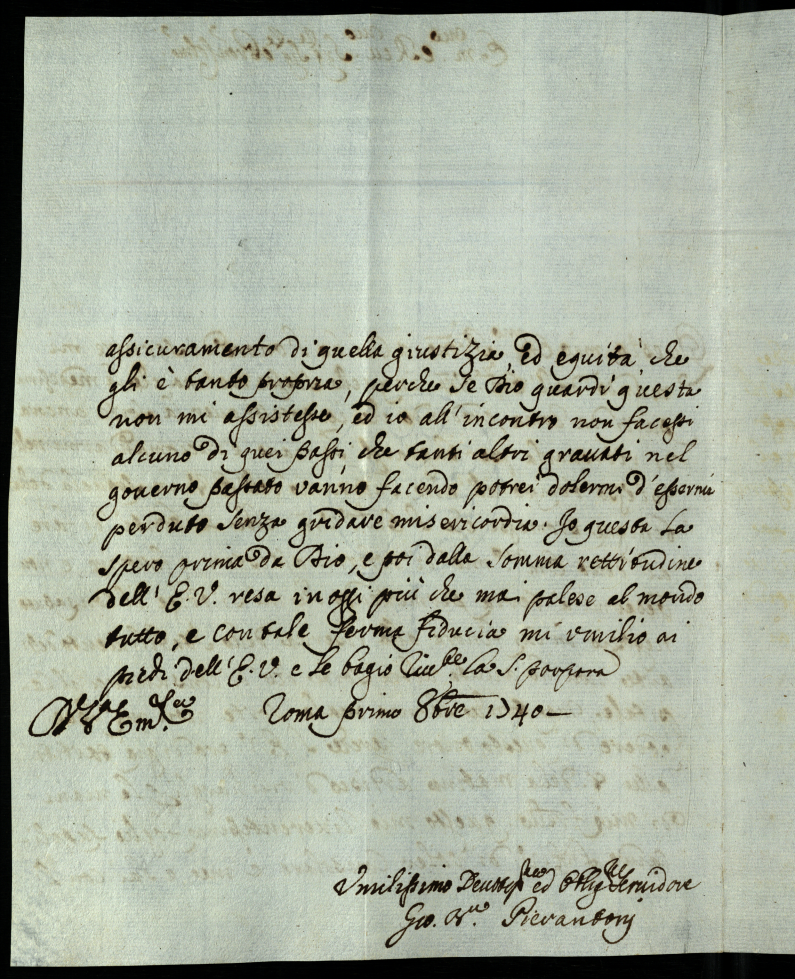 assicuramento di quella giustizia, ed equità che
gli è tanto propria, perche se Dio guardi questa
non mi assistesse, ed io all'incontro non facessi
alcuno di quei passi che tanti altri gravati nel
governo passato vanno facendo potrei dolermi d'essermi
perduto senza gridare misericordia. Io questa la
spero prima da Dio, e poi dalla somma rettitudine
dell'E.V. resa in oggi più che mai palese al mondo
tutto, e con tale ferma fiducia mi umilio ai
piedi dell'E.V. e le bagio la S. porpora
Roma primo 8bre 1740
Umilissimo Devotissmo ed Obligmo Servidore
Gio. Pierantonj